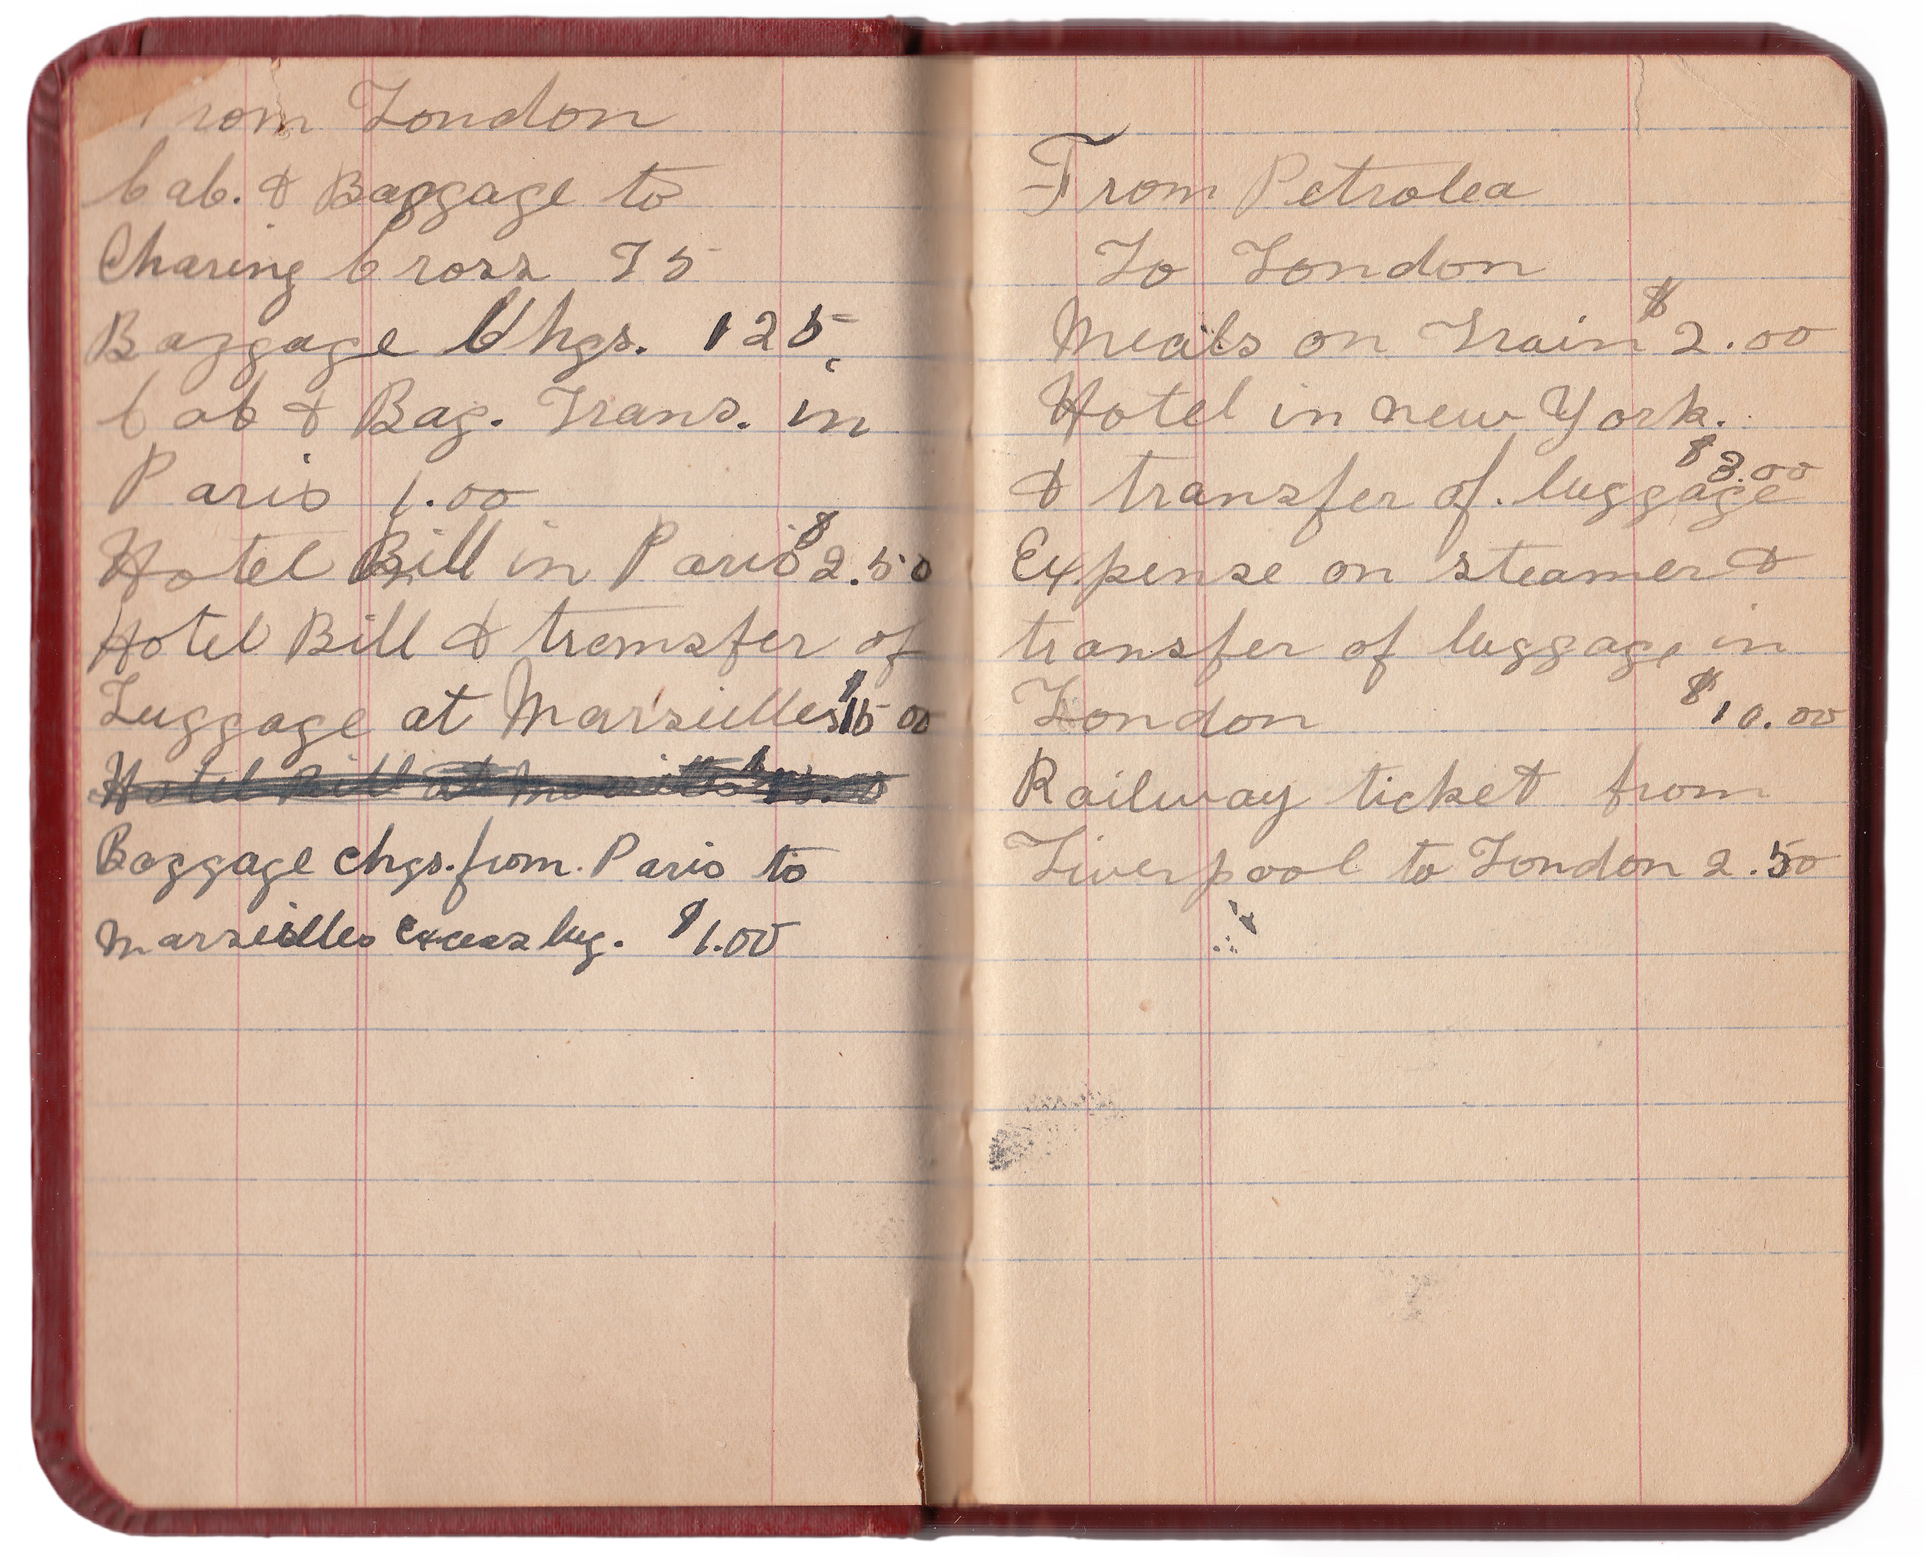 From London
Cab. & Baggage to
Charing Cross 75
Baggage Chgs. 125
Cab & Bag. Trans. in
Paris 1.00
Hotel Bill in Paris $2.50
Hotel Bill & transfer of
Luggage at Marseilles $15 00
Hotel Bill at
Baggage chgs. from Paris to
Marseilles Excess lug. $1.00
From Petrolea
To London
Meals on Train $2.00
Hotel in new York.
$3.00
& transfer of. luggage
Expense on steamer &
transfer of luggage in
London $10.00
Railway ticket from
Liverpool to London 2.50